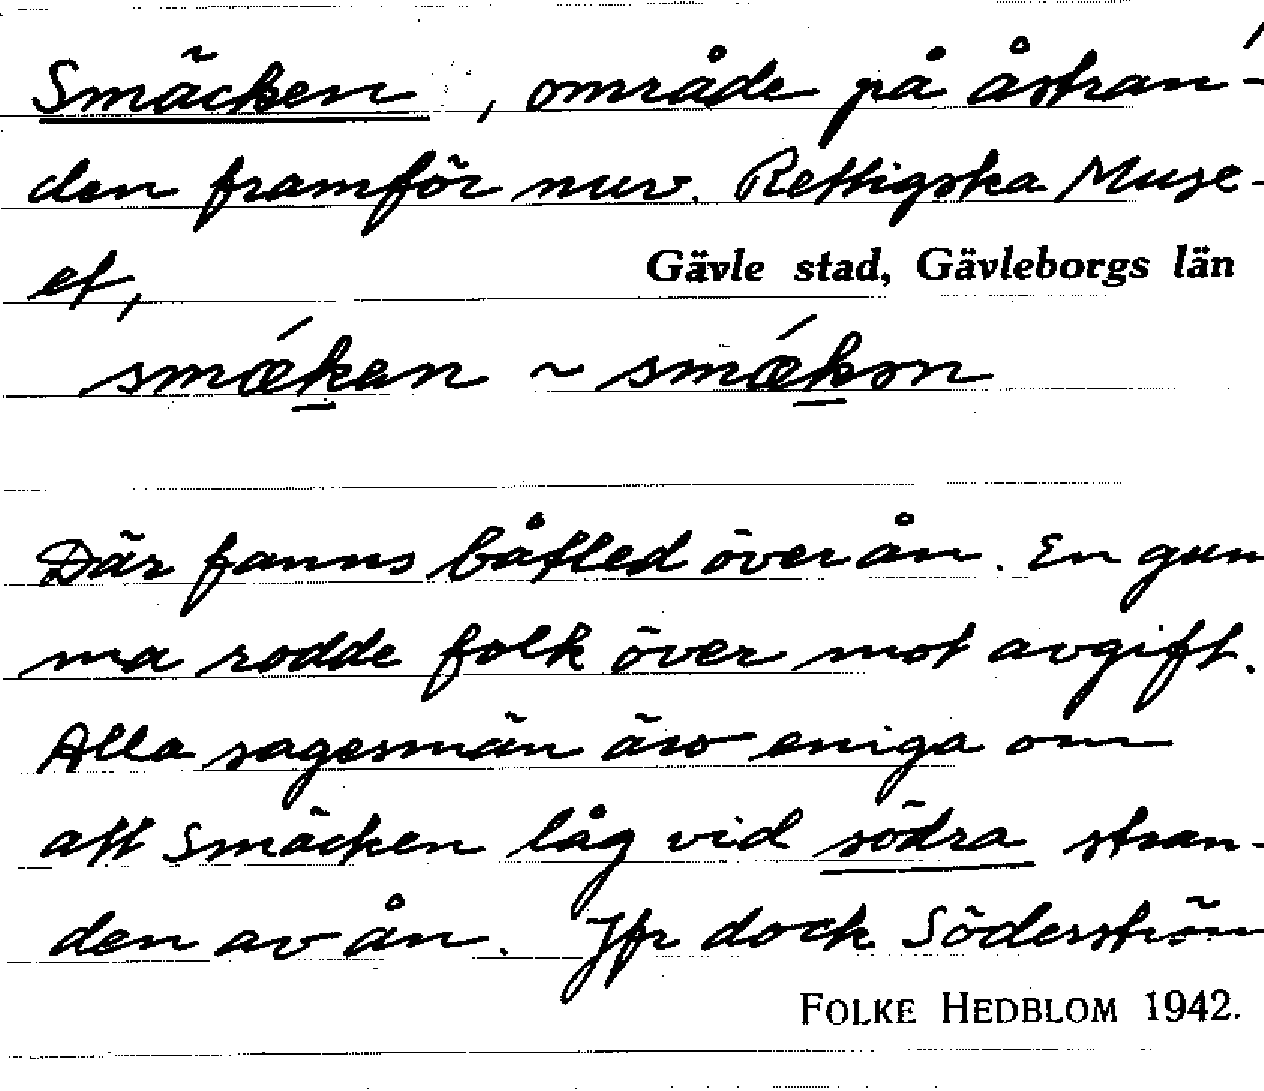 Smäcken, område på åstran-
den framför nuv. Rettigska Muse-
et,
Gävle stad, Gävleborgs län
smǽkan ~ smǽkon
Där fanns båtled över ån. En gum
ma rodde folk över mot avgift.
Alla sagesmän äro eniga om
att Smäcken låg vid södra stran-
den av ån. Jfr dock Söderström
FOLKE HEDBLOM 1942.